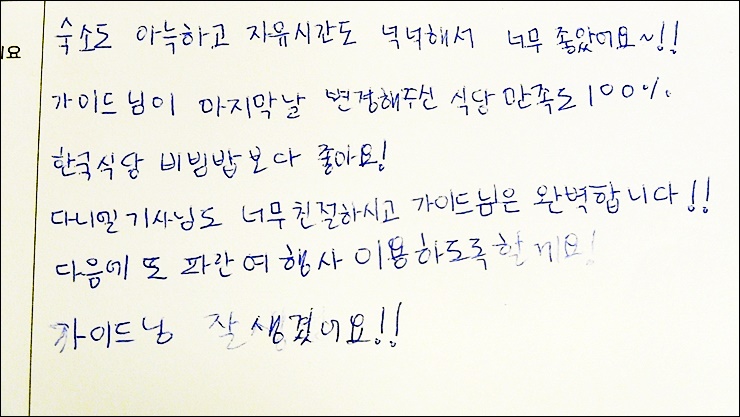 숙소도 아늑하고 자유시간도 넉넉해서 너무 좋았어요~!!
요
가이드님이 마지막날 변경해주신 식당 만족도 100%
한국식당 비빔밥보다 좋아요!
다니밀기사님도 너무친절하시고 가이드님은 완벽합니다!!
다음에 또 파란여행사 이용하도록할게요!
가이드님 잘생겼어요!!